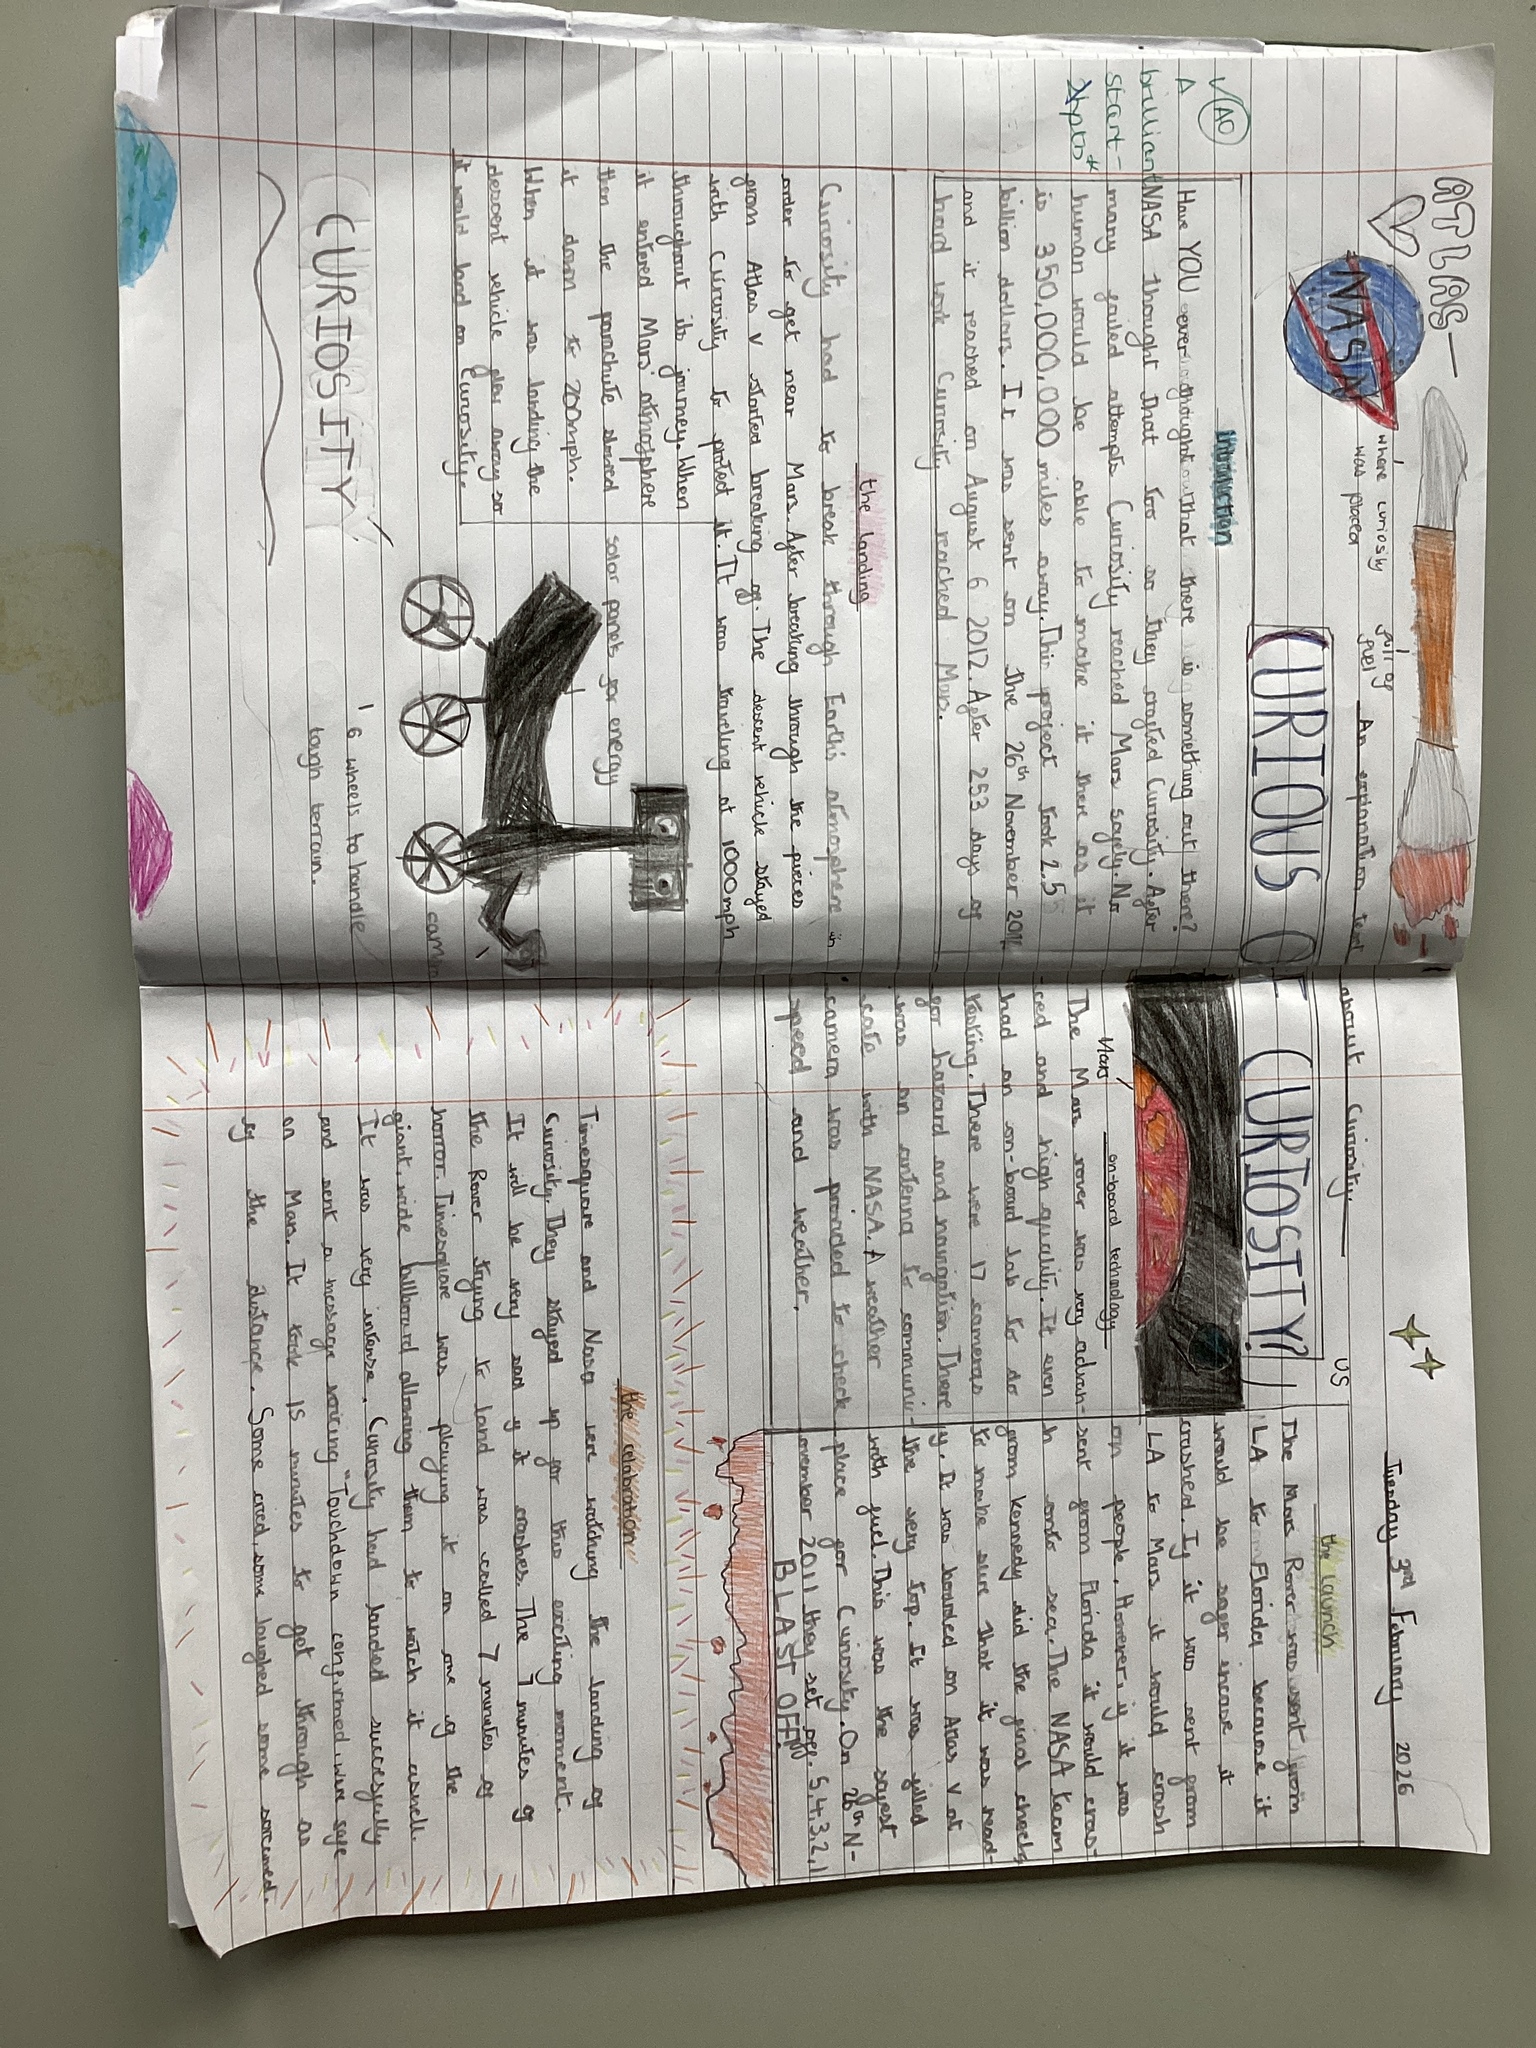 Tuesday 3rd February 2026
ATLAS
NASA
where curiosity
was placed
full of
fuel
An explanation text about Curiosity
CURIOUS OF CURIOSITY?
US
AO
A
brilliant
start-
2ppts*
Introduction
Have YOU ever thought that there is something out there?
NASA thought that too so they crafted Curiosity. After
many failed attempts Curiosity reached Mars safely. No
human would be able to make it there as it
is 350,000,000 miles away. This project took 2.5
billion dollars. It was sent on the 26th November 2011
and it reached on August 6 2012. After 253 days of
hard work Curiosity reached Mars.
the landing
Curiosity had to break through Earth's atmosphere in
order to get near Mars. After breaking through the pieces
from Atlas V started breaking of. The descent vehicle stayed
with Curiosity to protect it. It was traveling at 1000mph
throughout its journey. When
it entered Mars' atmosphere
then the parachute slowed
it down to 200mph.
When it was landing the
descent vehicle flew away so
it would land on Curiosity.
solar panels for energy
CURIOSITY
6 wheels to handle
tough terrain.
Mars
on-board technology
The Mars rover was very advan-
ced and high quality. It even
had an on-board lab to do
testing. There were 17 cameras
for hazard and navigation. There
was an antenna to communic-
cate with NASA. A weather
camera was provided to check
speed and weather.
the launch
The Mars Rover was sent from
LA to Florida because it
would be safer incase it
crashed. If it was sent from
LA to Mars it would crash
on people. However, if it was
sent from Florida it would cras-
h onto sea. The NASA team
from kennedy did the final checks
to make sure that it was read-
y. It was boarded on Atlas V at
the very top. It was filled
with fuel. This was the safest
place for Curiosity. On 26th N-
ovember 2011 they set off. 5,4,3,2,1
BLAST OFF!
the celabration
Timesquare and Nasa were watching the landing of
Curiosity. They stayed up for this exciting moment.
It will be very sad if it crashes. The 7 minutes of
the Rover trying to land was called 7 minutes of
horror. Timesquare was playing it on one of the
giant, wide billboard allowing them to watch it aswell.
It was very intense. Curiosity had landed succesfully
and sent a message saying "Touchdown confirmed we're safe
on Mars. It took 15 minutes to get through as
of the distance. Some cried, some laughed some screamed.